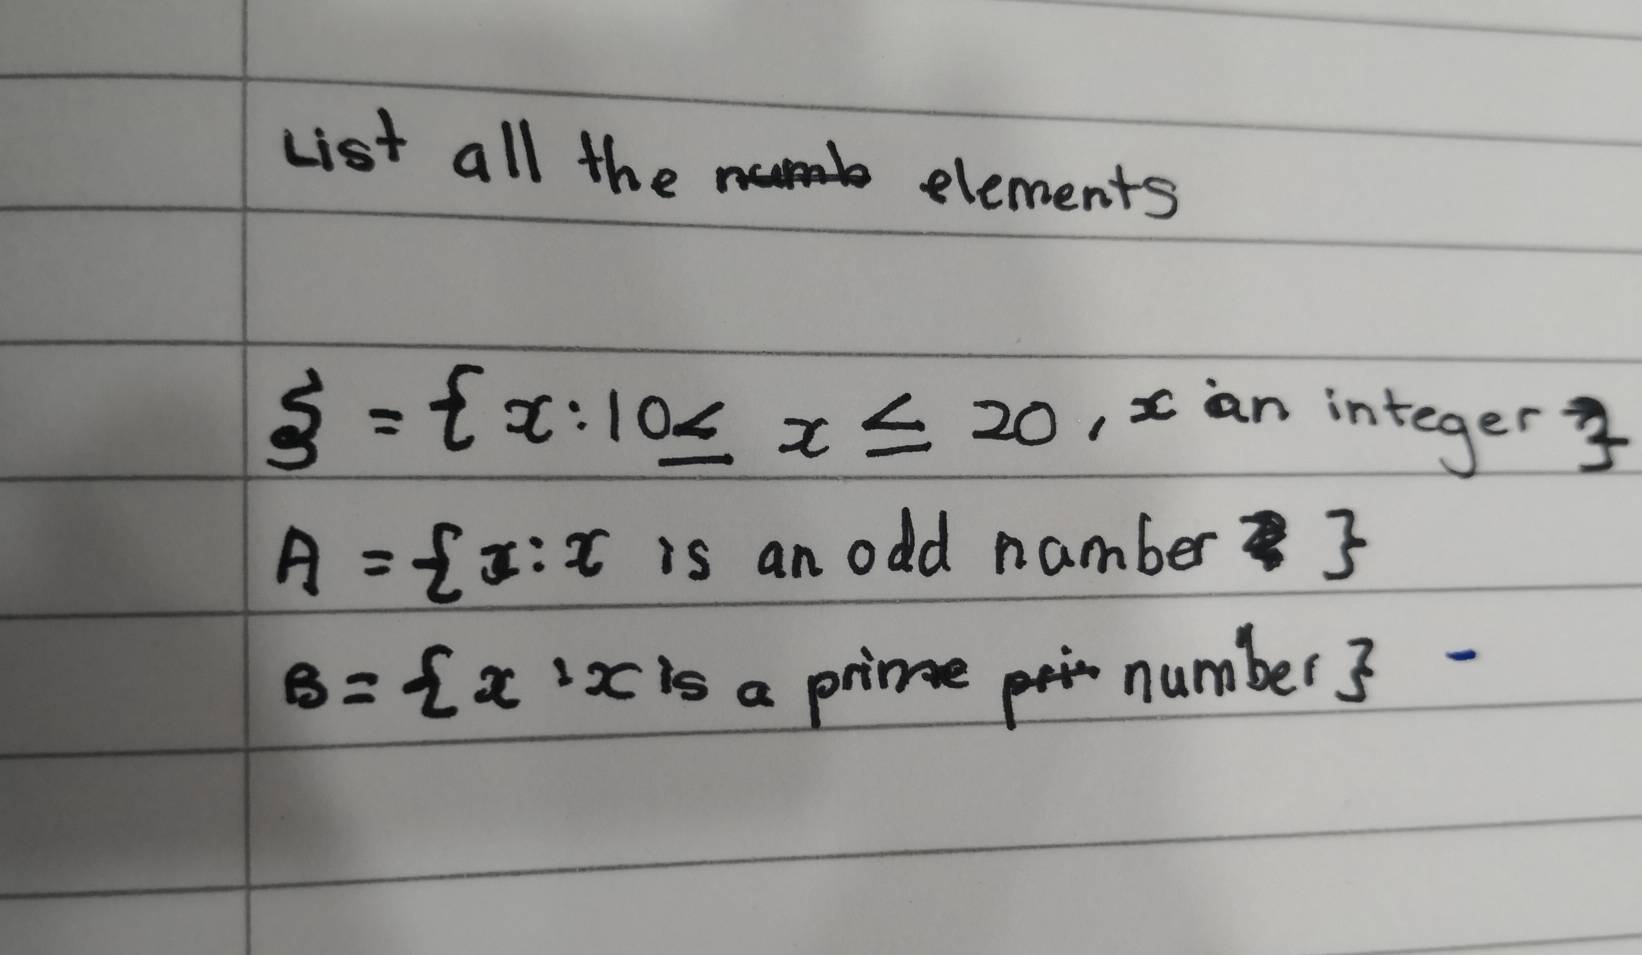 List all the numb elements
ξ = { x : 10 ≤ x ≤ 20 , x an integer }
A = { x : x is an odd number }
B = { x : x is a prime pri number }